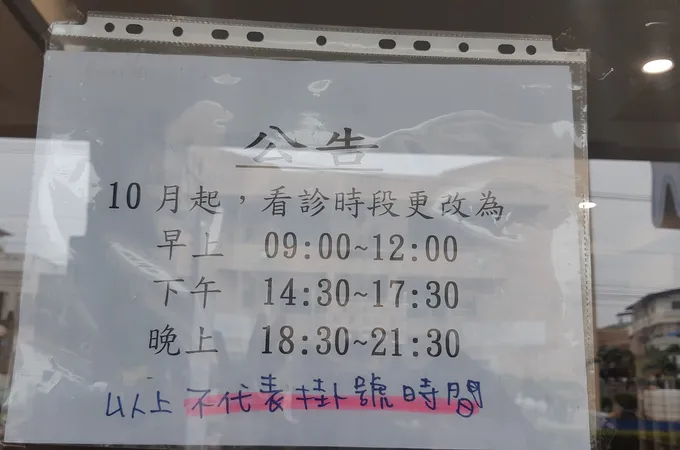 公告
10月起，看診時段更改為
早上 09:00~12:00
下午 14:30~17:30
晚上 18:30~21:30
以上不代表掛號時間